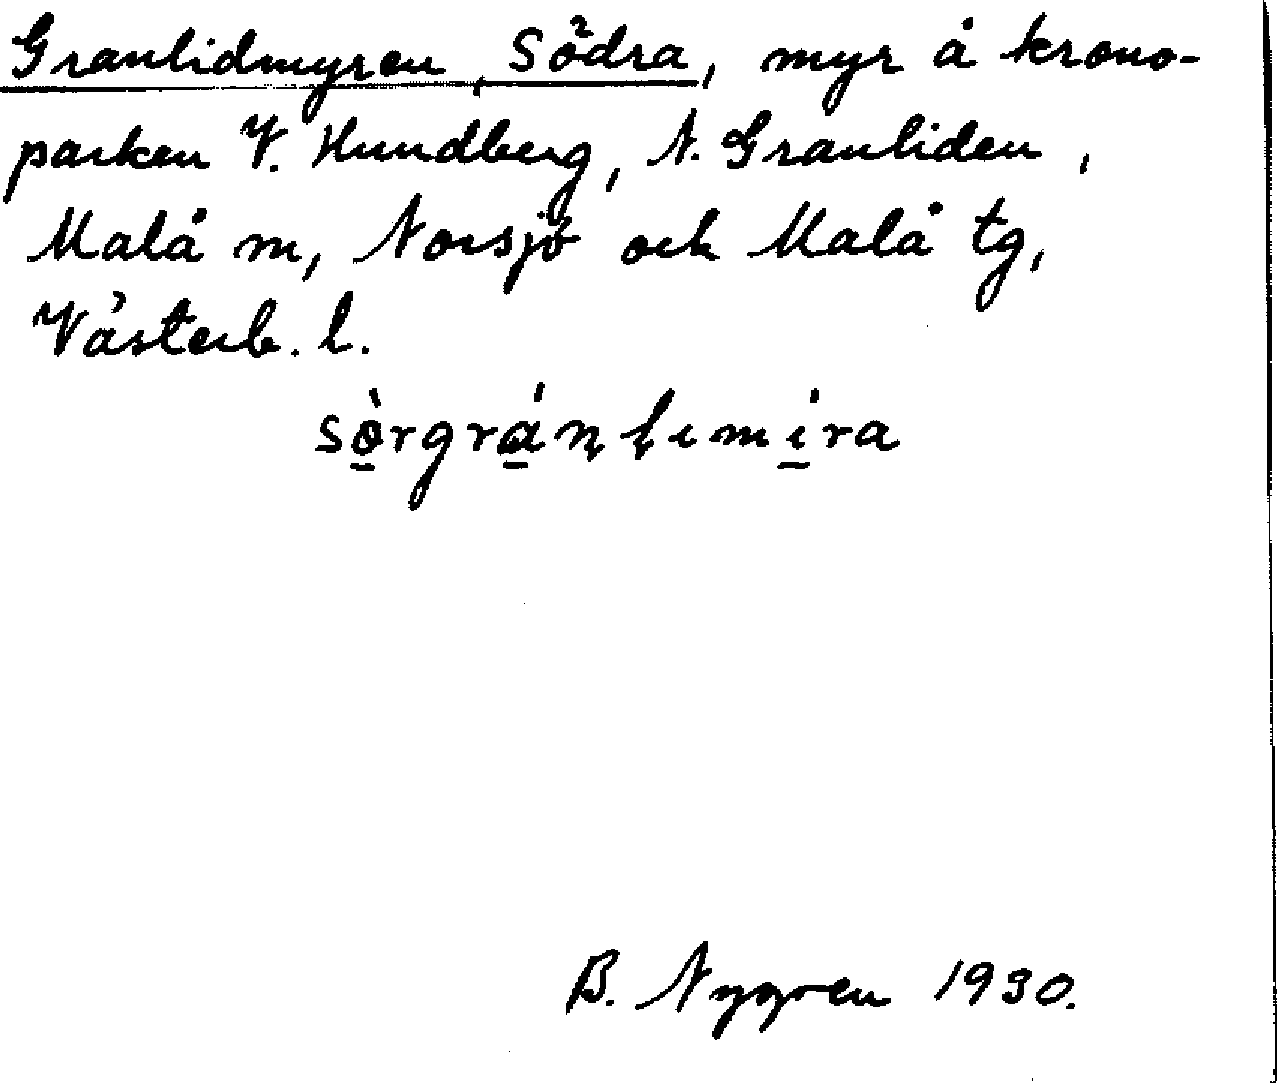 Granlidmyren, Södra, myr å krono-
parken V. Hundberg, N. Granliden,
Malå sn, Norsjö och Malå tg,
Västerb. l.
sò̱rgrá̱ṇḷımí̱ra
B. Nygren 1930.